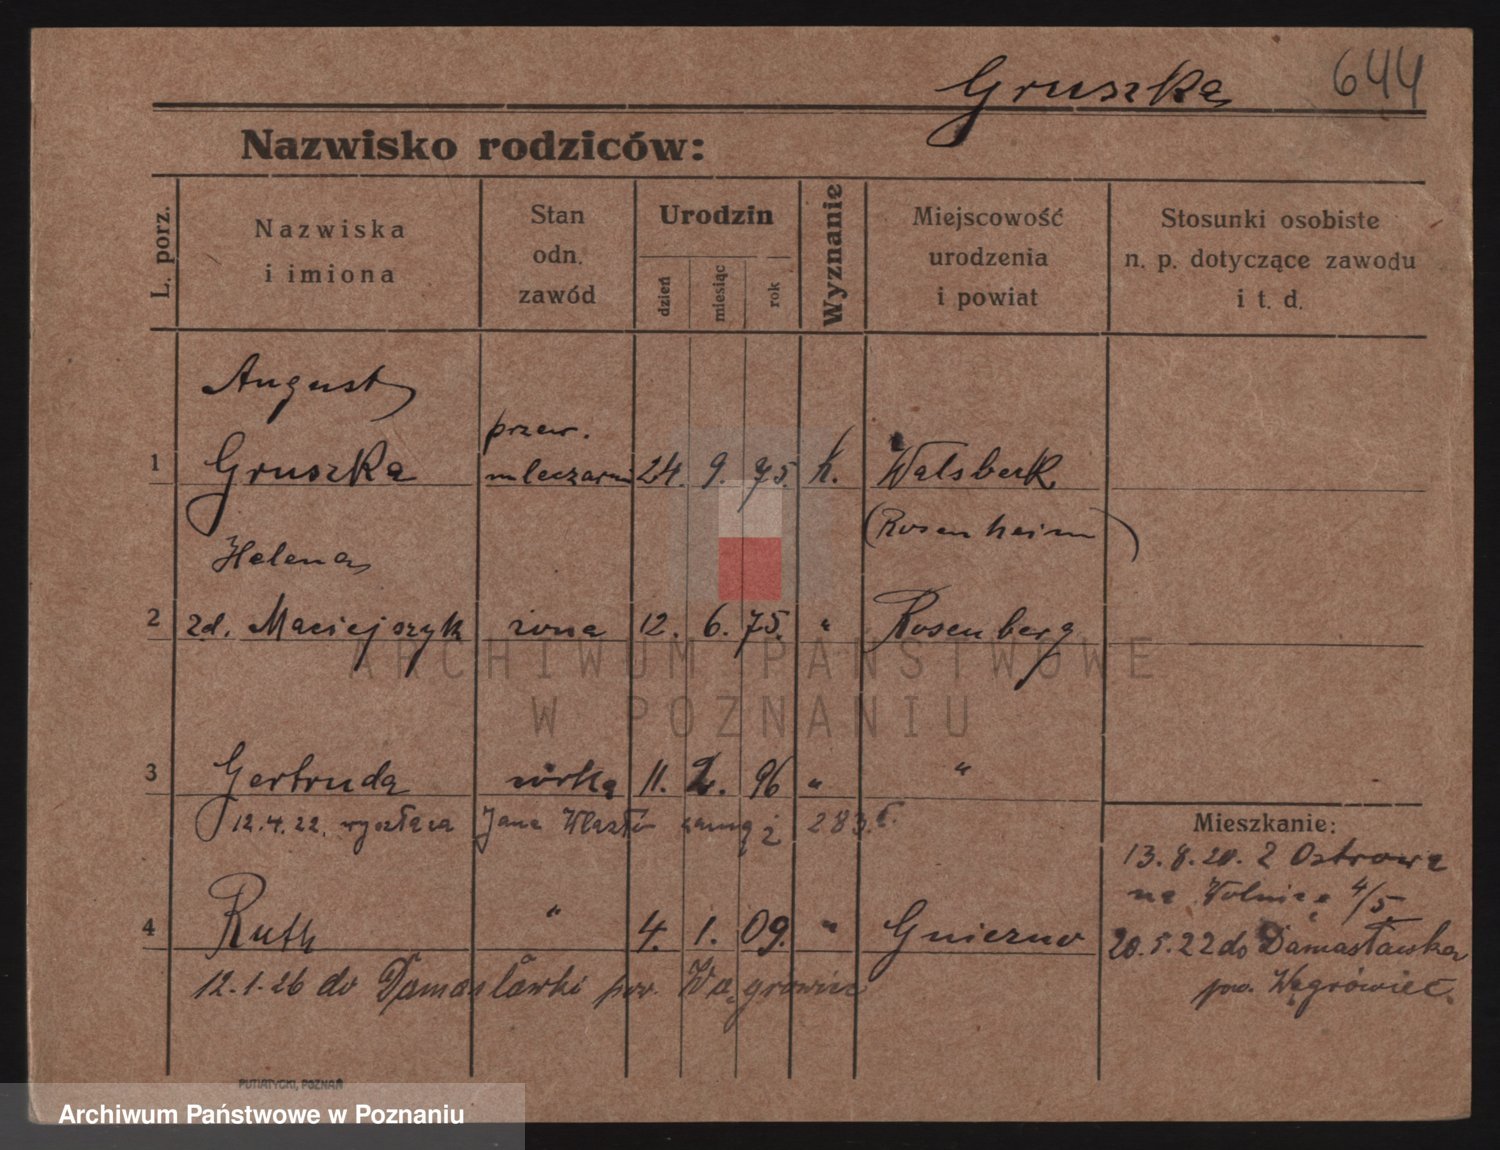 Gruszka 644
Nazwisko rodziców:
L. porz.
Nazwiska
i imiona
Stan
odn.
zawód
Urodzin
dzień
miesiąc
rok
Wyznanie
Miejscowość
urodzenia
i powiat
Stosunki osobiste
n. p. dotyczące zawodu
i t. d.
August
przew.
1 Gruszka mleczarni 24. 9. 75. k. Walsberk
(Rosenheim)
Helena
2 zd. Maciejszyk żona 12. 6. 75. " Rosenberg
3 Gertruda córka 11. 2. 96 " "
12.4.22. wyszła za Jana zamąż 283.
Mieszkanie:
13.8.20. z Ostrowa
na Wolnicę 4/5
4 Ruth " 4. 1. 09. " Gniezno
20.5.22 do Damasławka
12.1.26 do Damasławki pow. Wągrówiec
pow. Wągrówiec.
PUTIATYCKI, POZNAŃ
ARCHIWUM PAŃSTWOWE
W POZNANIU
Archiwum Państwowe w Poznaniu